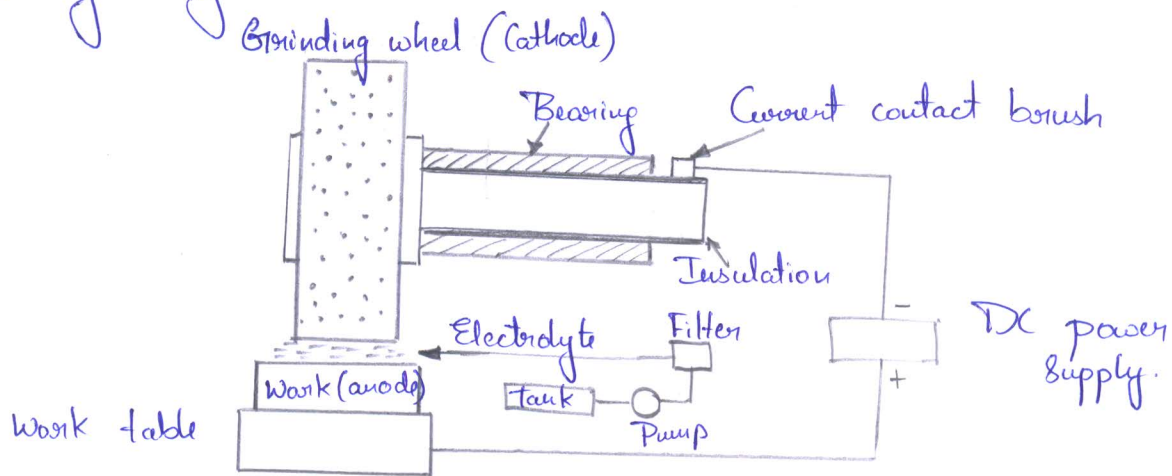 Grinding wheel (Cathode)
Bearing
Current contact brush
Insulation
Electrolyte
Filter
-
DC power
supply.
+
Work (anode)
tank
Pump
Work table